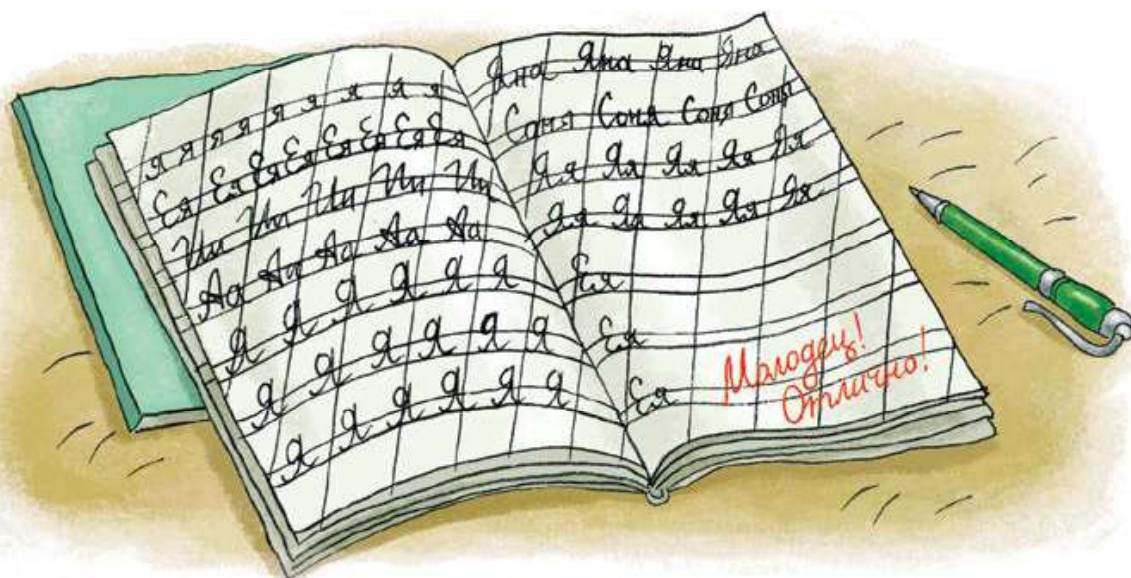 я я я я я я я я я
Ея Ея Ея Ея Ея Ея Ея Ея
Ии Ии Ии Ии Ии
Аа Аа Аа Аа Аа
Я Я Я Я Я Я
Я Я Я Я Я Я
Я Я Я Я Я Я
Яна Яна Яна Яна
Соня Соня Соня Соня
Яя Яя Яя Яя Яя
Яя Яя Яя Яя Яя
Ея
Ея
Ея
Молодец!
Отлично!